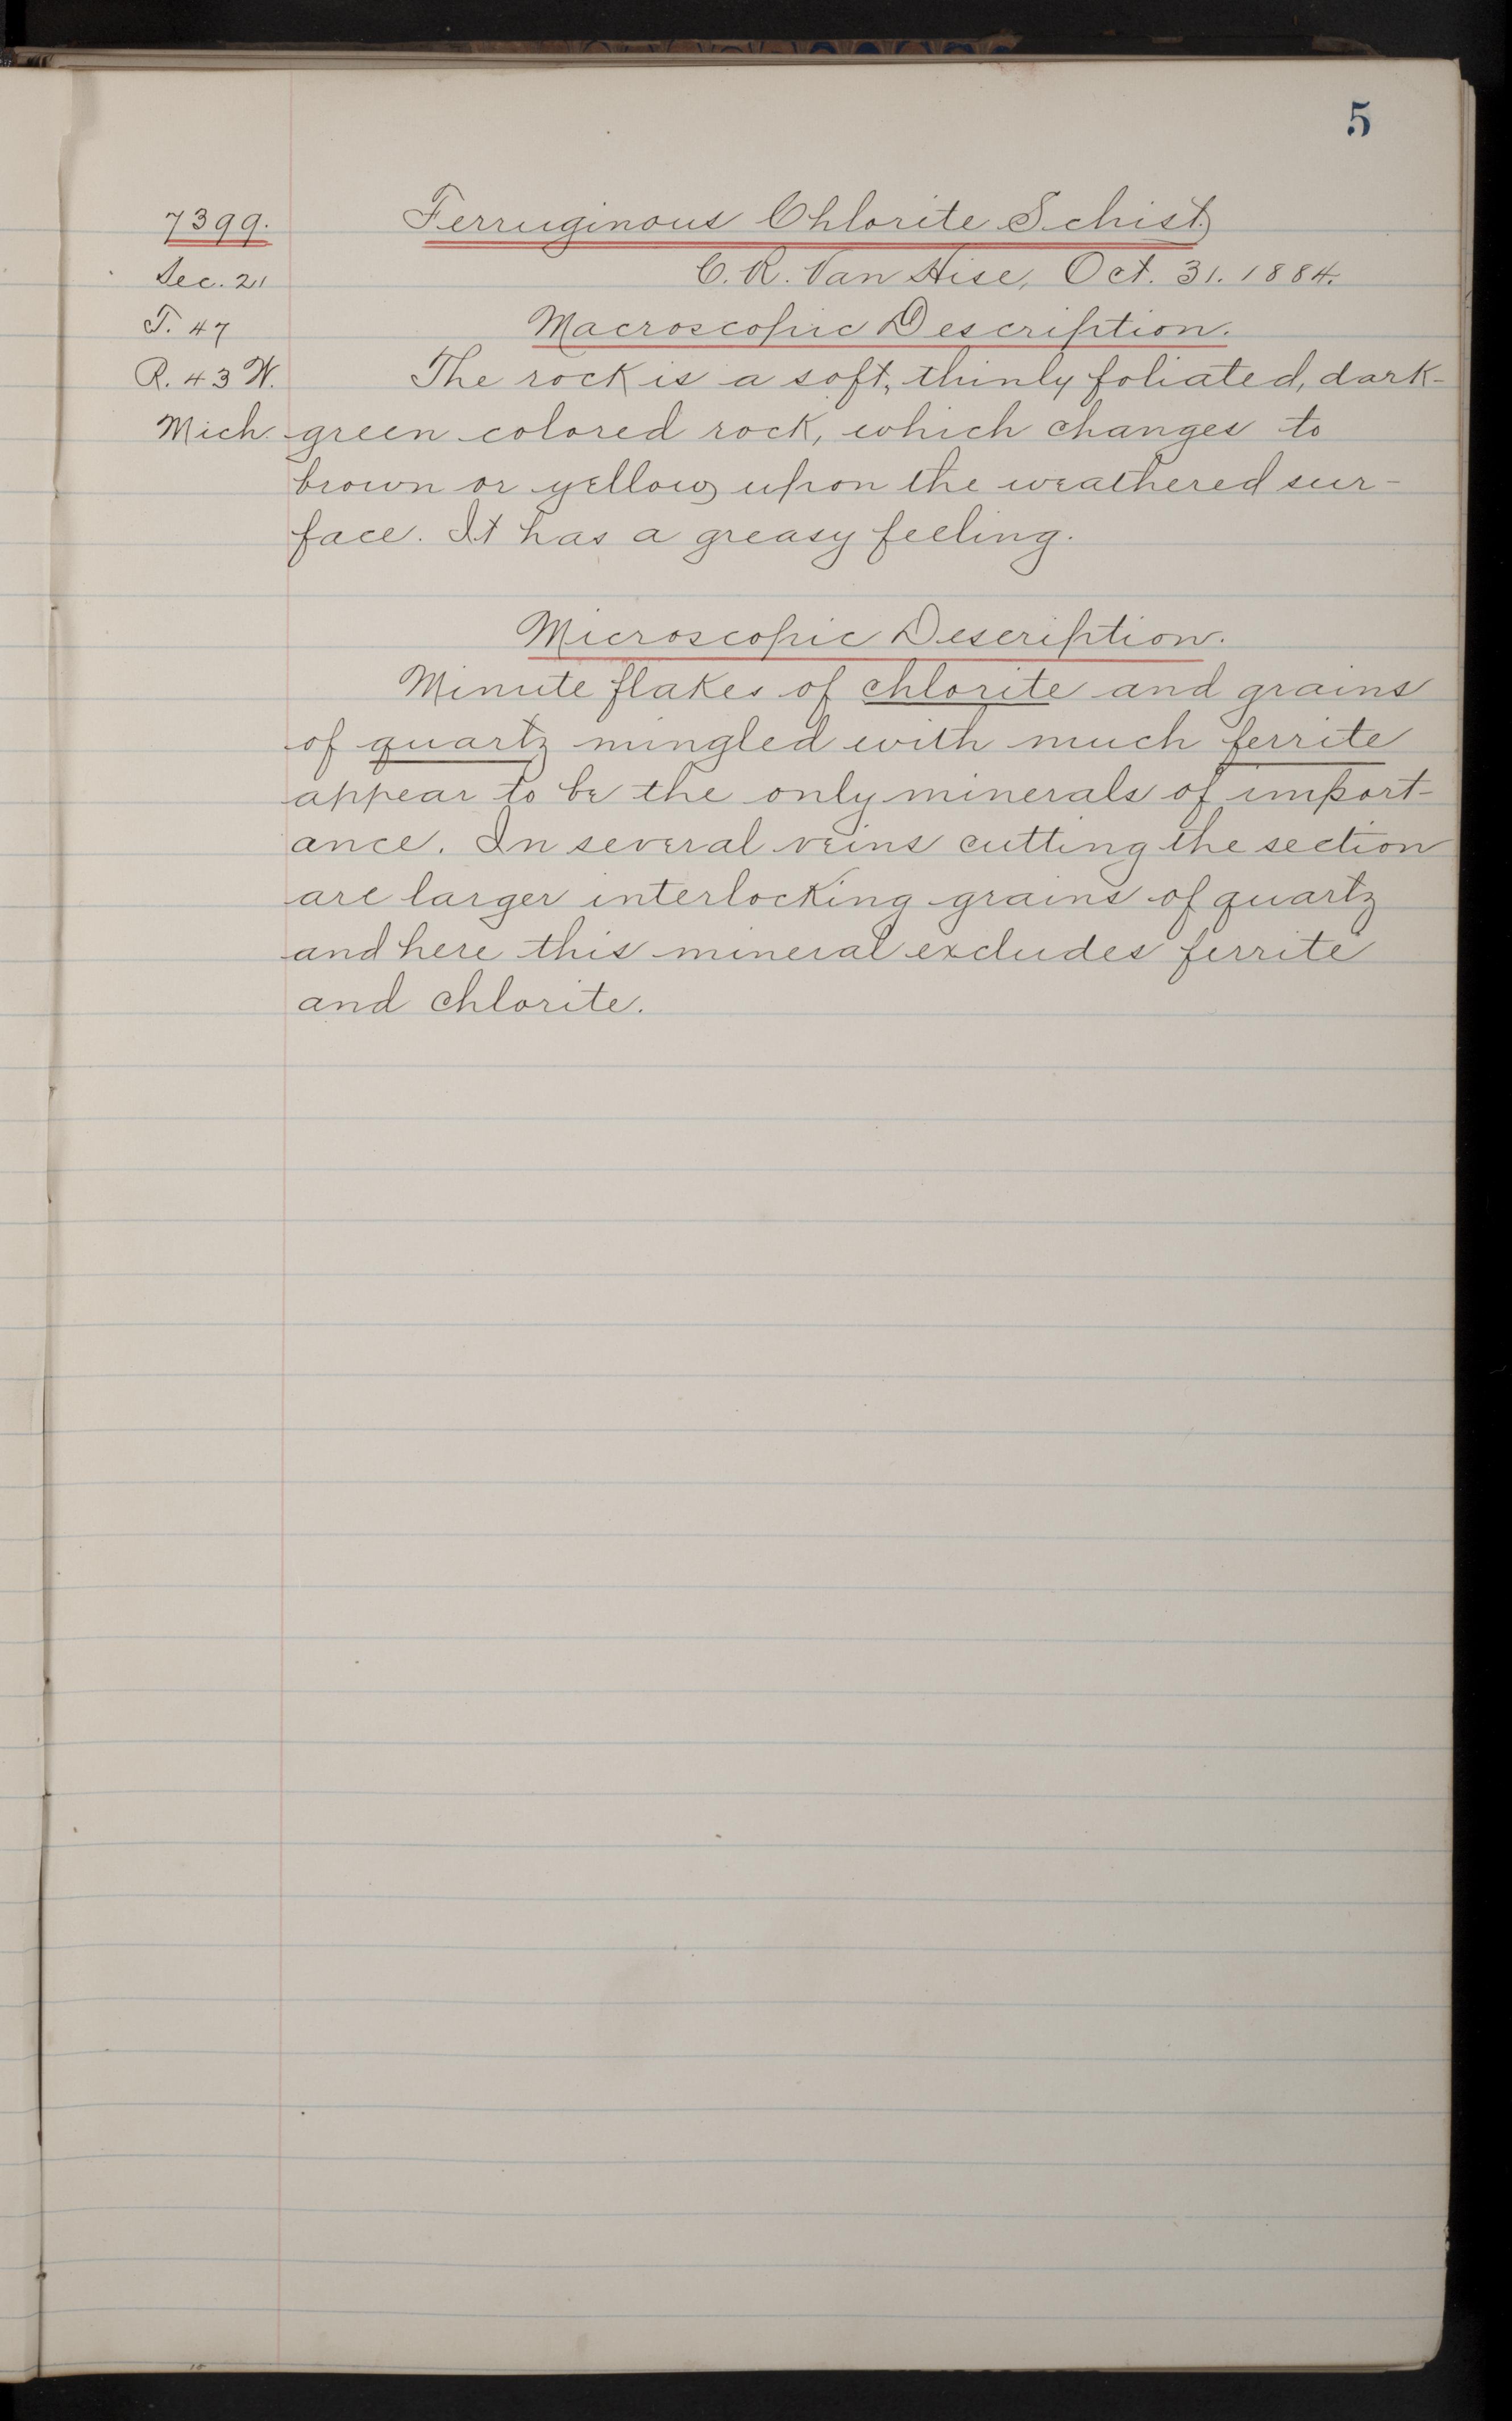 5
7399. Ferruginous Chlorite Schist.
Sec. 21 C. R. Van Hise, Oct. 31. 1884.
T. 47 Macroscopic Description.
R. 43 W. The rock is a soft, thinly foliated, dark-
Mich. green colored rock, which changes to
brown or yellow upon the weathered sur-
face. It has a greasy feeling.
Microscopic Description.
Minute flakes of chlorite and grains
of quartz mingled with much ferrite
appear to be the only minerals of import-
ance. In several veins cutting the section
are larger interlocking grains of quartz
and here this mineral excludes ferrite
and chlorite.